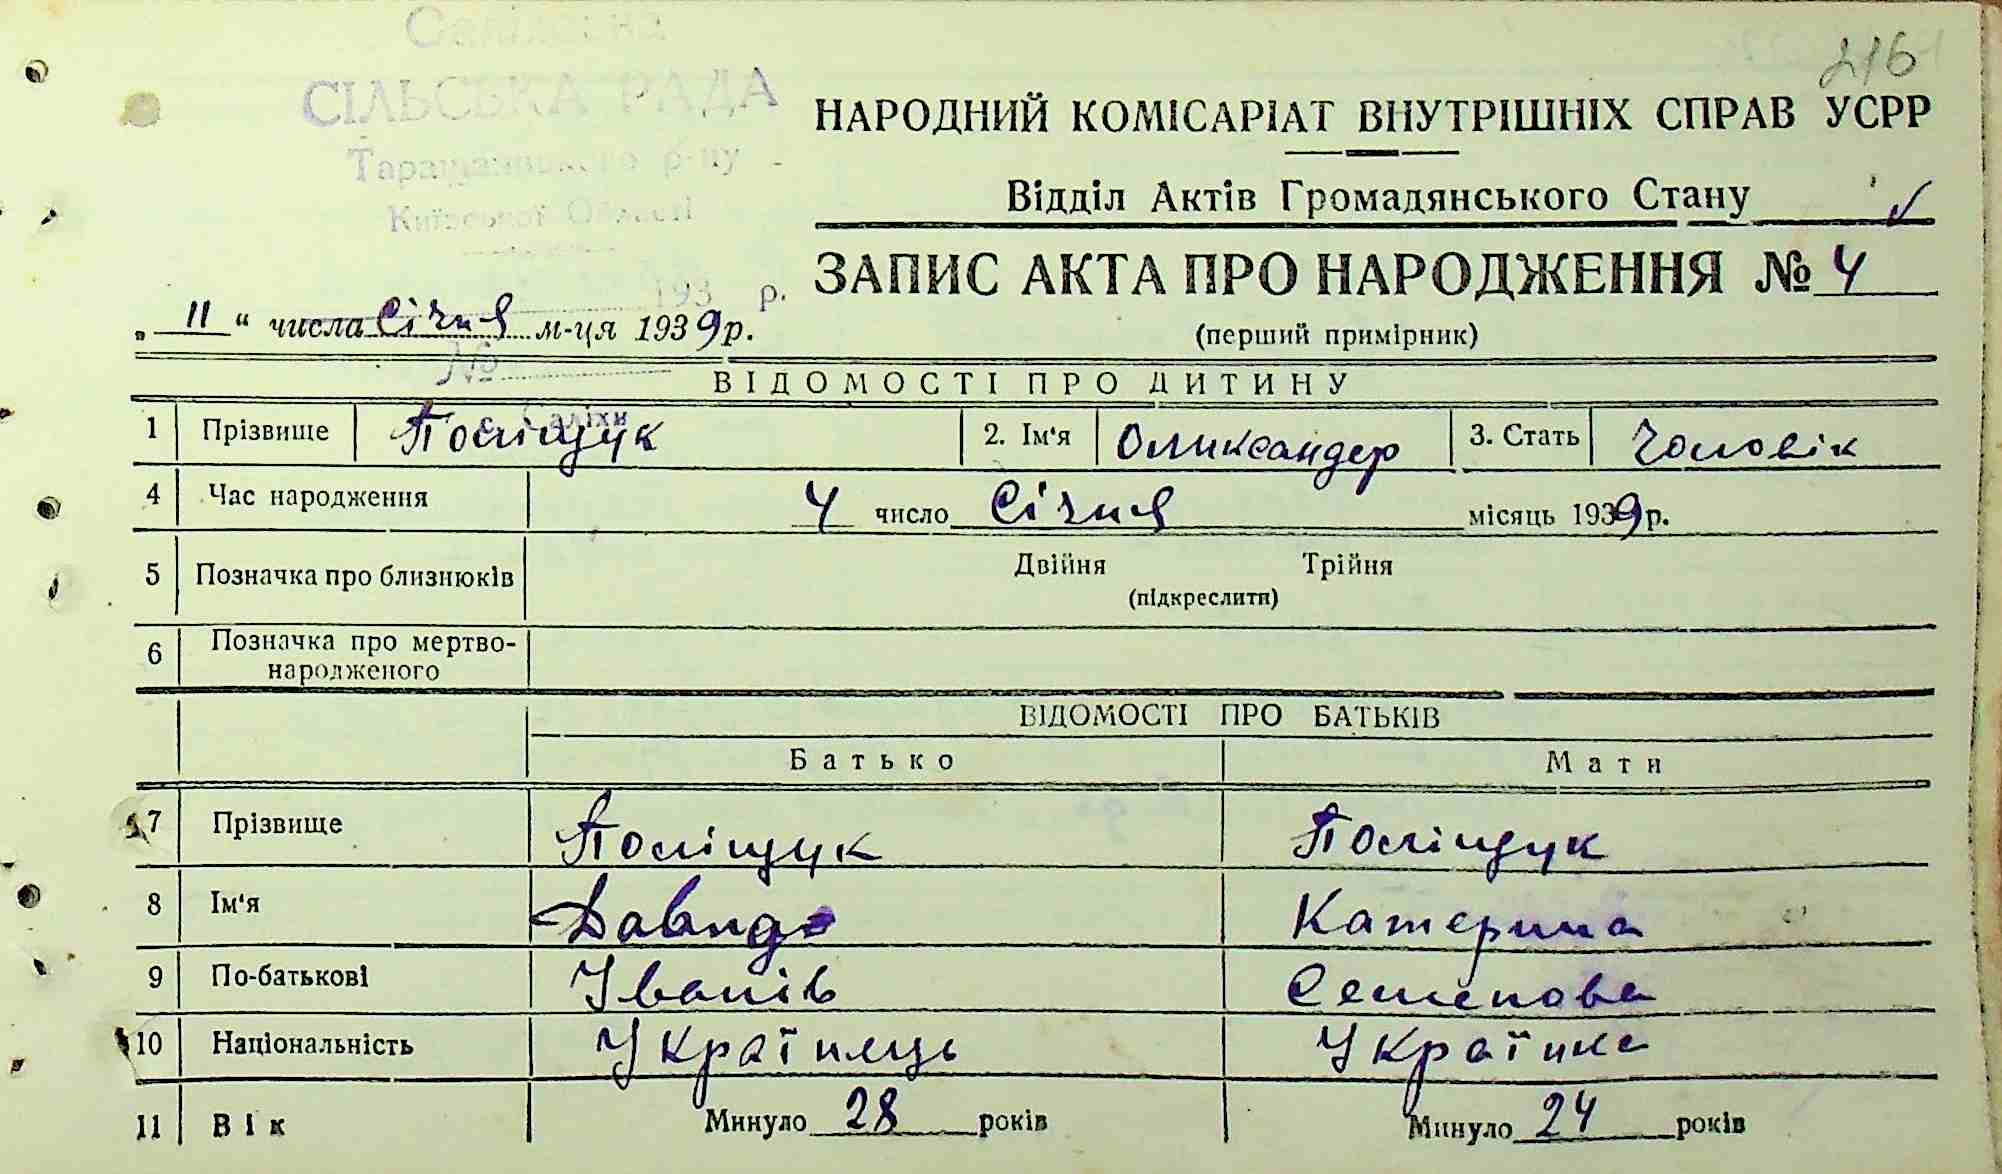 216
Салихська
СІЛЬСЬКА РАДА
Таращанського р-ну
Київської Області
193 р.
№
с. Саліхи
НАРОДНИЙ КОМІСАРІАТ ВНУТРІШНІХ СПРАВ УСРР
Відділ Актів Громадянського Стану
ЗАПИС АКТА ПРО НАРОДЖЕННЯ № 4
(перший примірник)
„ 11 “ числа Січня м-ця 1939 р.
ВІДОМОСТІ ПРО ДИТИНУ
1 Прізвище Поліщук 2. Ім'я Олександер 3. Стать Чоловік
4 Час народження 4 число Січня місяць 1939 р.
5 Позначка про близнюків Двійня Трійня
(підкреслити)
6 Позначка про мертво-
народженого
ВІДОМОСТІ ПРО БАТЬКІВ
Батько Мати
7 Прізвище Поліщук Поліщук
8 Ім'я Давид Катерина
9 По-батькові Іванів Семенова
10 Національність Українець Українка
11 Вік Минуло 28 років Минуло 24 років